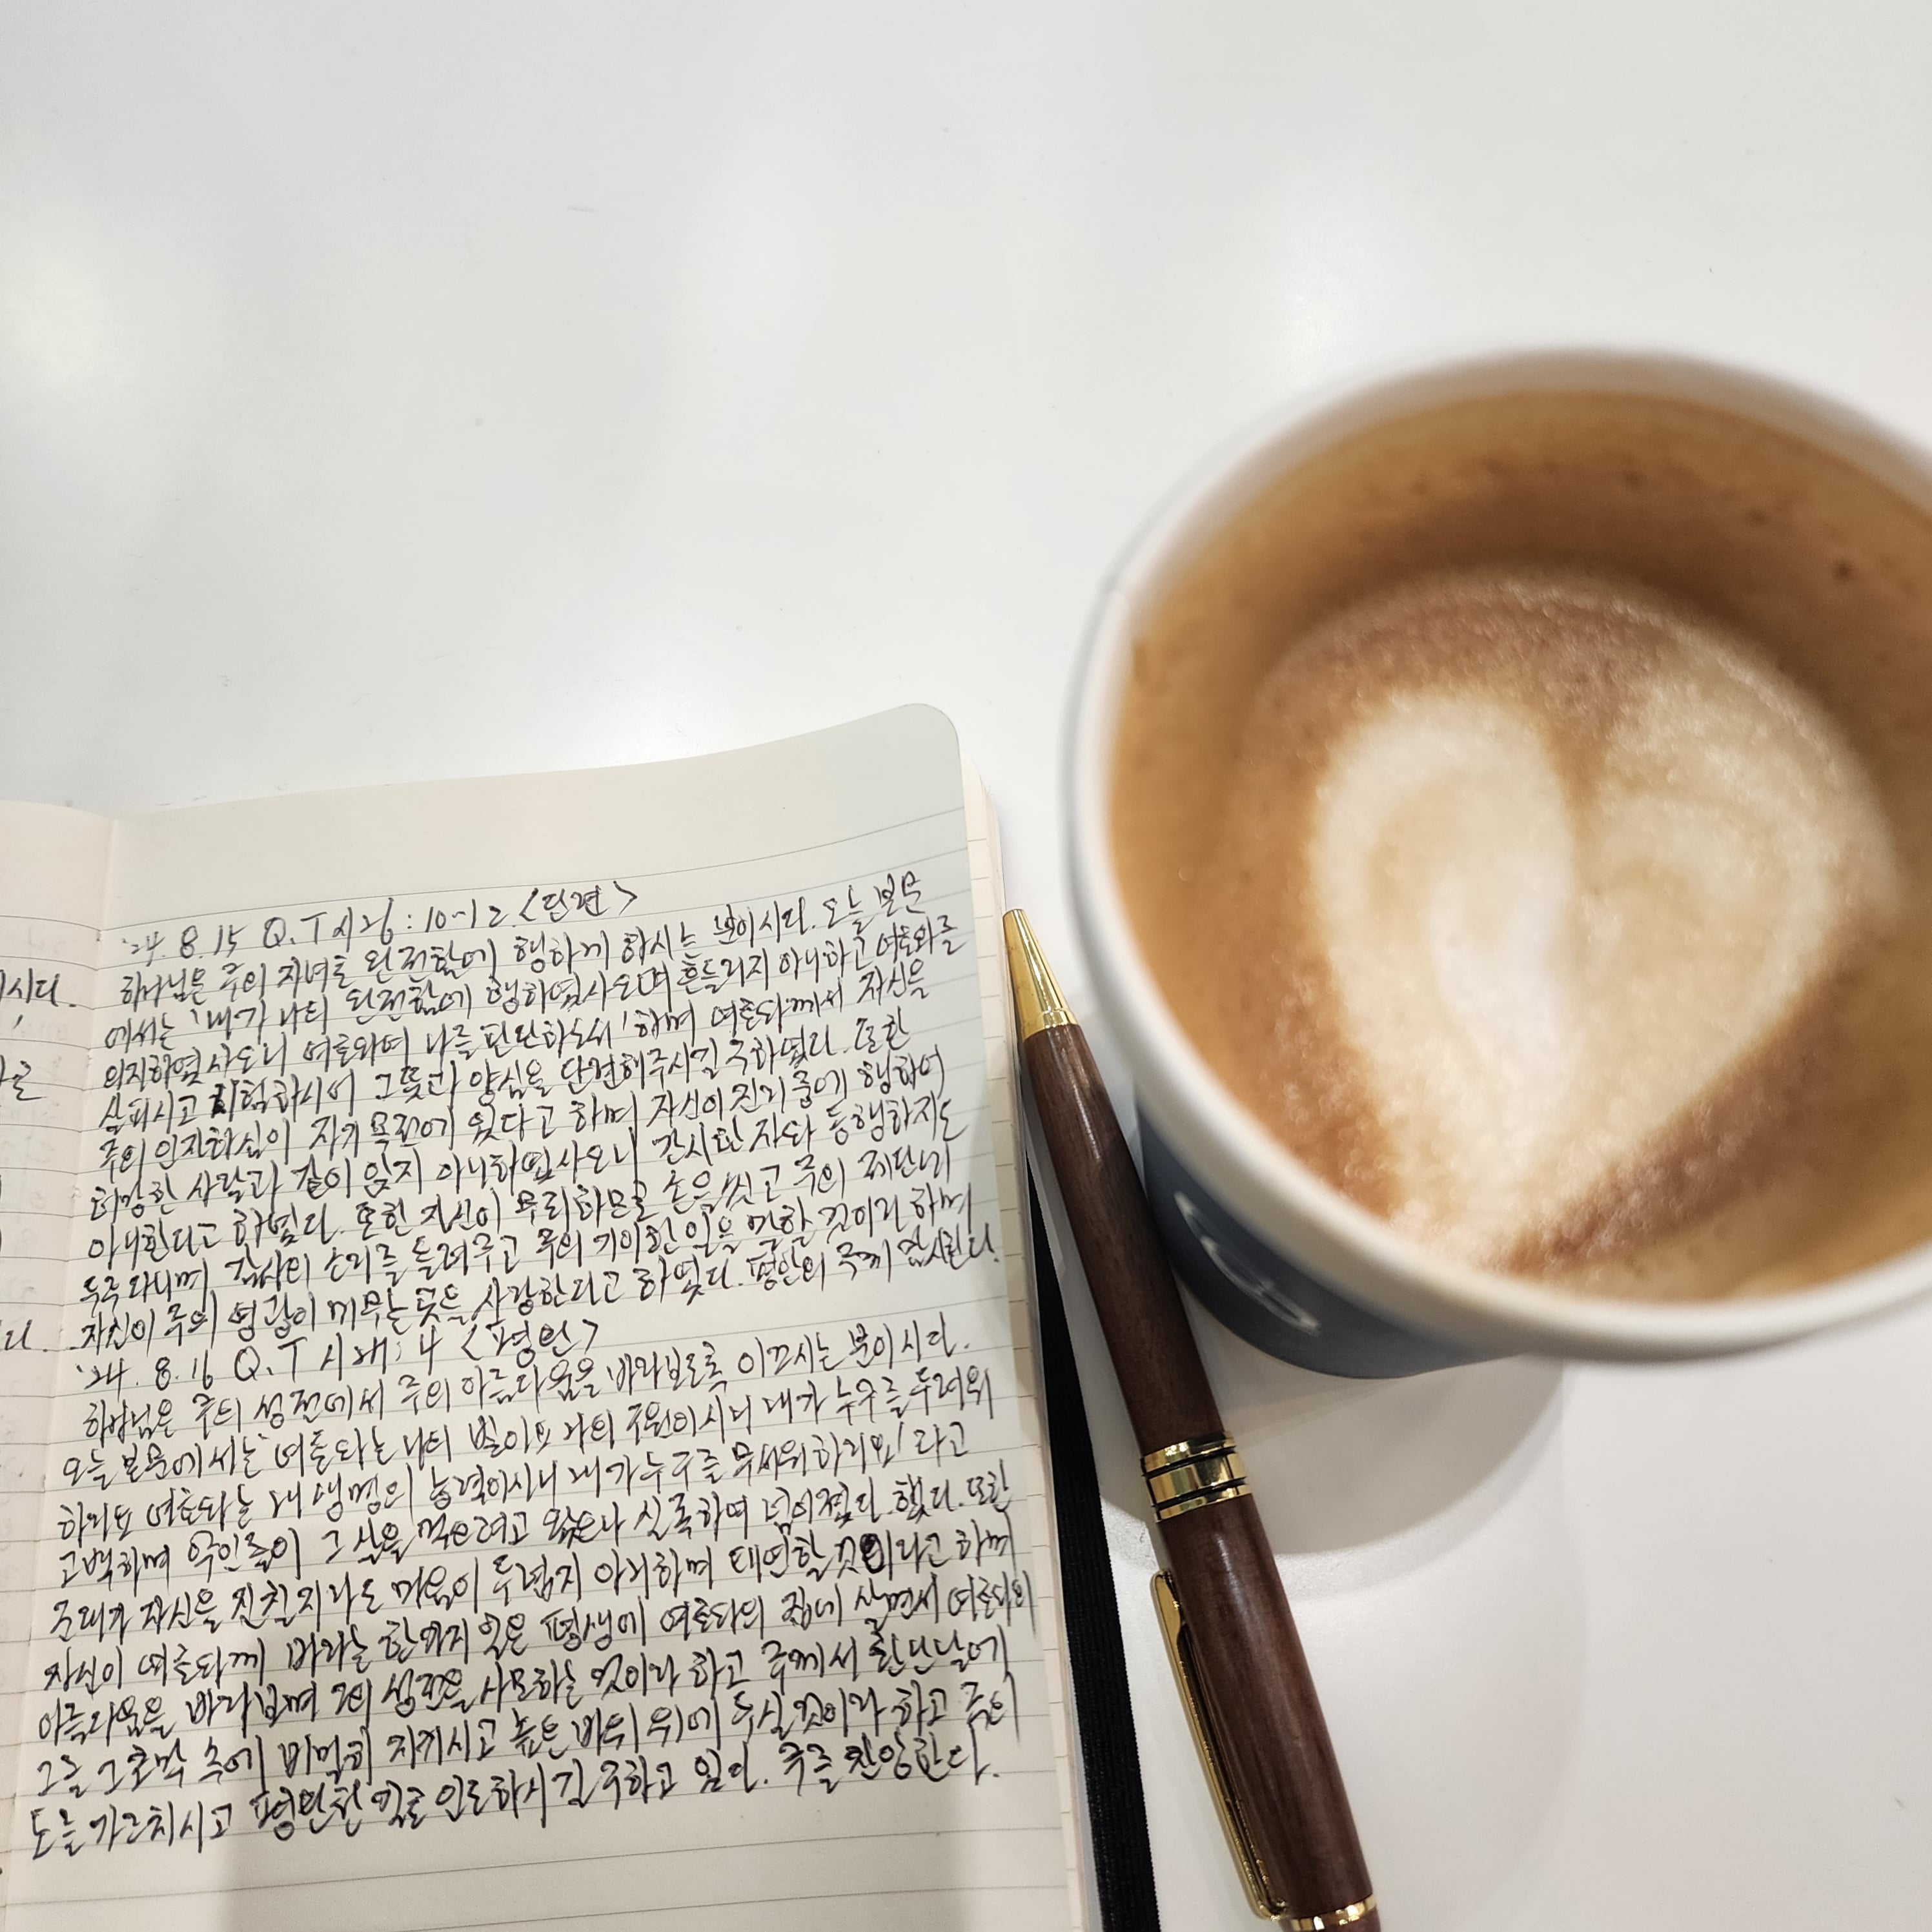 '24. 8.15 Q.T 시26:10-12 <단련>
하나님은 주의 자녀로 완전함에 행하게 하시는 분이시다. 오늘 본문
에서는 '내가 나의 완전함에 행하였사오며 흔들리지 아니하고 여호와를
의지하였사오니 여호와여 나를 판단하소서' 하며 여호와께서 자신을
살피시고 시험하시어 그 뜻과 양심을 단련해주시길 구하였다. 또한
주의 인자하심이 자기 목전에 있다고 하며 자신이 진리 중에 행하여
허망한 사람과 같이 앉지 아니하였사오니 간사한 자와 동행하지도
아니한다고 하였다. 또한 자신이 무죄하므로 손을 씻고 주의 제단에
두루 다니며 감사의 소리를 들려주고 주의 기이한 일을 말할 것이라 하며
자신이 주의 영광이 머무는 곳을 사랑한다고 하였다. 평안의 주께 감사한다.
'24. 8.16 Q.T 시 4 <평안>
하나님은 주의 성전에서 주의 아름다움을 바라보도록 이끄시는 분이시다.
오늘 본문에서는 '여호와는 나의 빛이요 나의 구원이시니 내가 누구를 두려워
하리요 여호와는 내 생명의 능력이시니 내가 누구를 무서워하리요' 라고
고백하며 악인들이 그 살을 먹으려고 왔으나 실족하여 넘어졌다 했다. 또한
군대가 자신을 진칠지라도 마음이 두렵지 아니하며 태연할 것이라고 하며
자신이 여호와께 바라는 한가지 일은 평생에 여호와의 집에 살면서 여호와의
아름다움을 바라보며 그의 성전을 사모하는 것이라 하고 주께서 환난날에
그를 그 초막 속에 비밀히 지키시고 높은 바위 위에 두실 것이라 하고 주의
도를 가르치시고 평탄한 길로 인도하시길 구하고 있다. 주를 찬양한다.